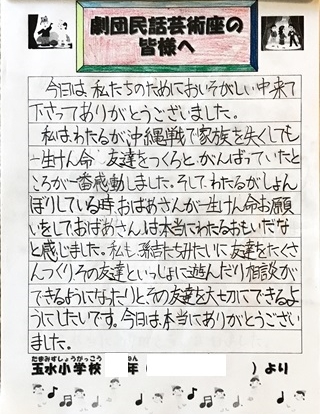 劇団民話芸術座の
皆様へ
今日は、私たちのためにおいそがしい中来て
下さってありがとうございました。
私は、わたるが沖縄戦で家族を失くしても
一生けん命友達をつくろと、がんばっていたと
ころが一番感動しました。そして、わたるがしょん
ぼりしている時、おばあさんが一生けん命お願
いをして、おばあさんは本当にわたるおもいだな
と感じました。私も、孫結たちみたいに友達をたくさ
んつくりその友達といっしょに遊んだり相談が
できるようになったりとその友達を大切にできるよ
うにしたいです。今日は、本当にありがとうござい
ました。
たまみずしょうがっこう ねん
玉水小学校 年( )より